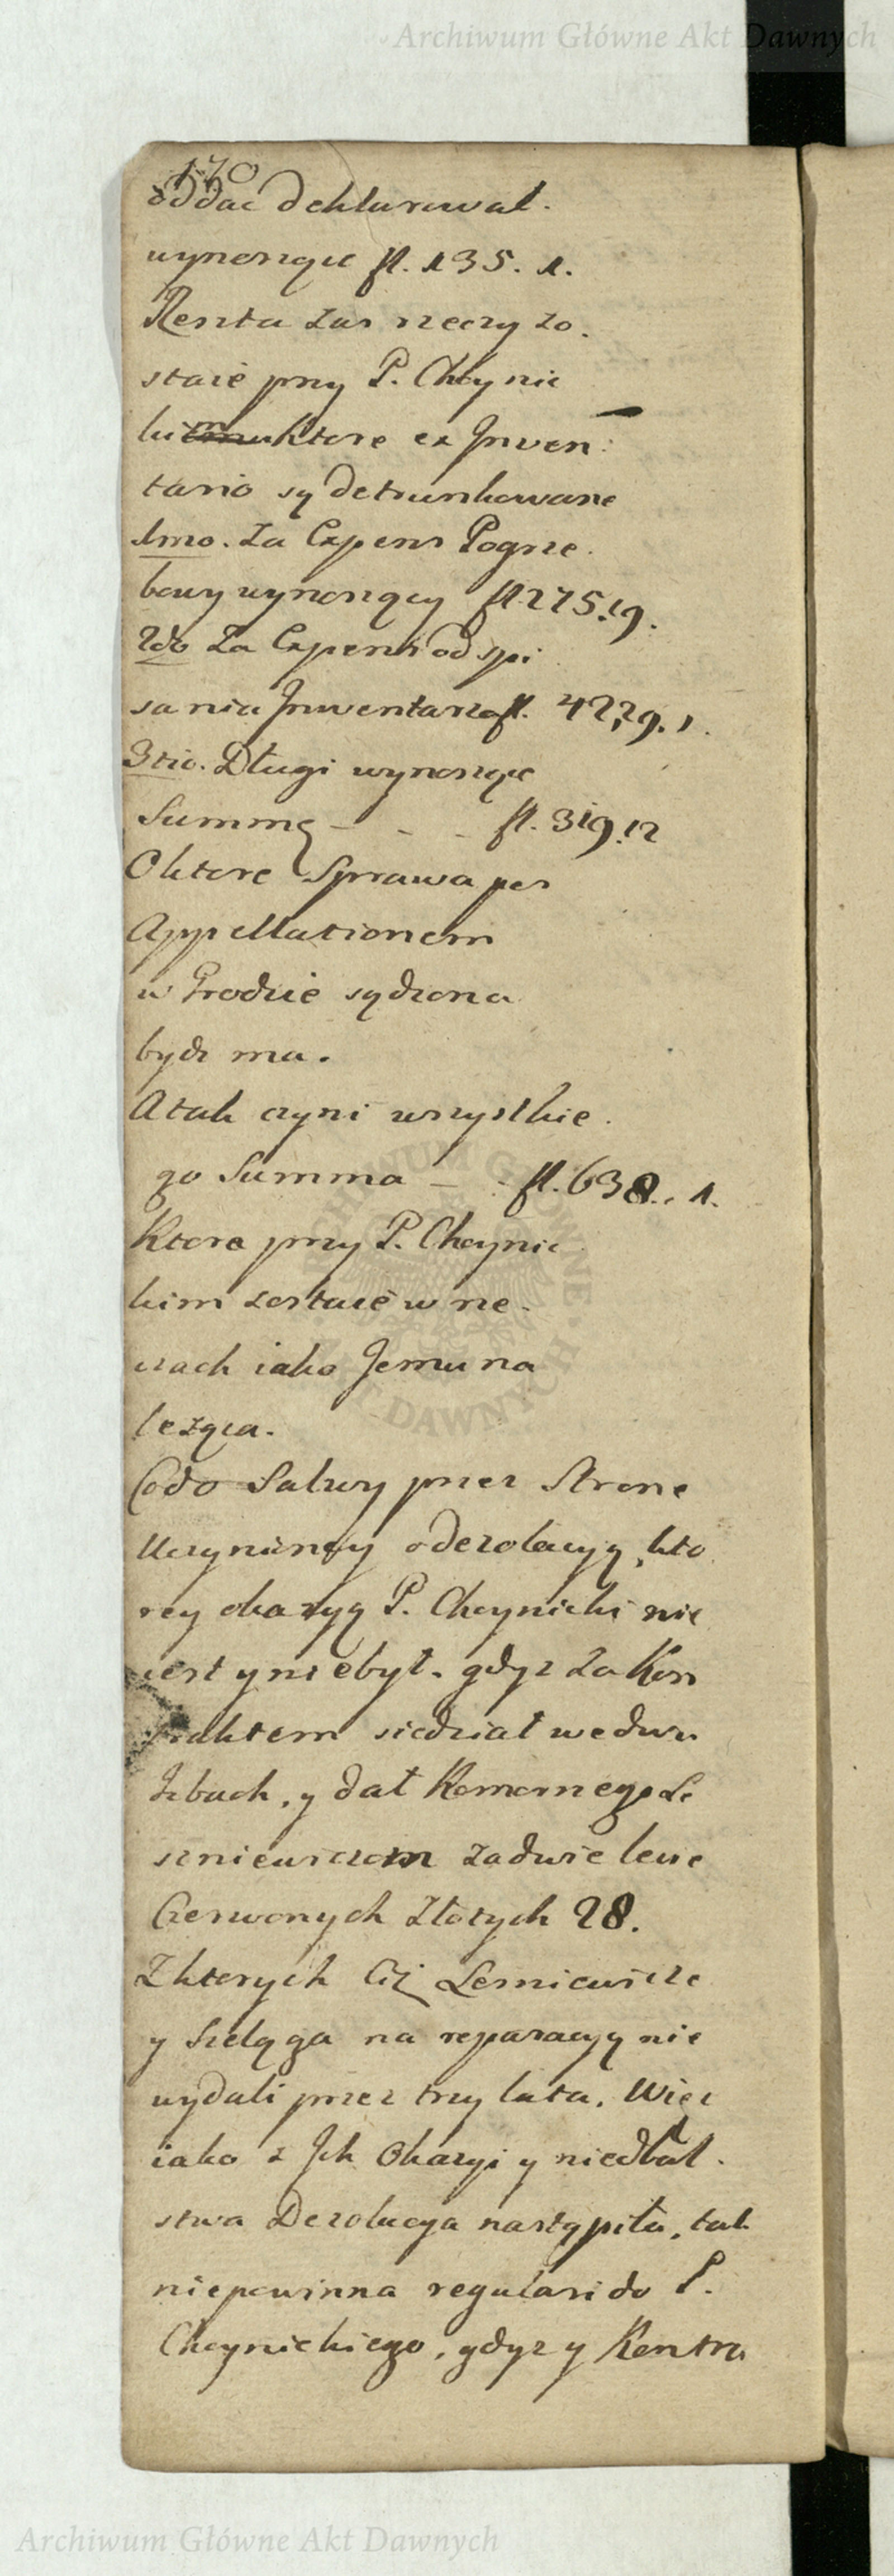 Archiwum Główne Akt Dawnych
170
oddac deklarował.
wynosące fl. 135. 1.
Reszta zas rzeczy zo.
staie przy P. Choynic
kim ktore ex Inven:
tario są detrunkowane
1mo. Za Expens Pogrze.
bowy wynoszący fl 275.19.
2do Za Expens od spi
sania Inwentarza fl. 42,29.1.
3tio. Długi wynoszące
Summę - - - fl. 319.12
O ktore Sprawa per
Appellationem
w Grodzie sądzona
bydz ma.
A tak czyni wszystkie.
go Summa - - fl. 638.. 1.
Ktora przy P. Choynic
kim zostaie w rze.
czach iako Jemu na
leząca.
Co do Salwy przez Strone
Uczynioney o dezolacyą, kto
rey okazyą P. Choynicki nie
iest y nie był. gdyz za Kon
traktem siedział we dwu
Izbach, y dał Komornego Le
szniewiczom za dwie lecie
Czerwonych Złotych 28.
Z ktorych Ciż Lesniewicze
y Szeląga na reparacyą nie
wydali przez trzy lata. Więc
iako z Ich Okazyi y niedbal.
stwa Dezolacya nastąpiła, tak
niepowinna regulari do P.
Choynickiego, gdyz y Kontra
Archiwum Główne Akt Dawnych